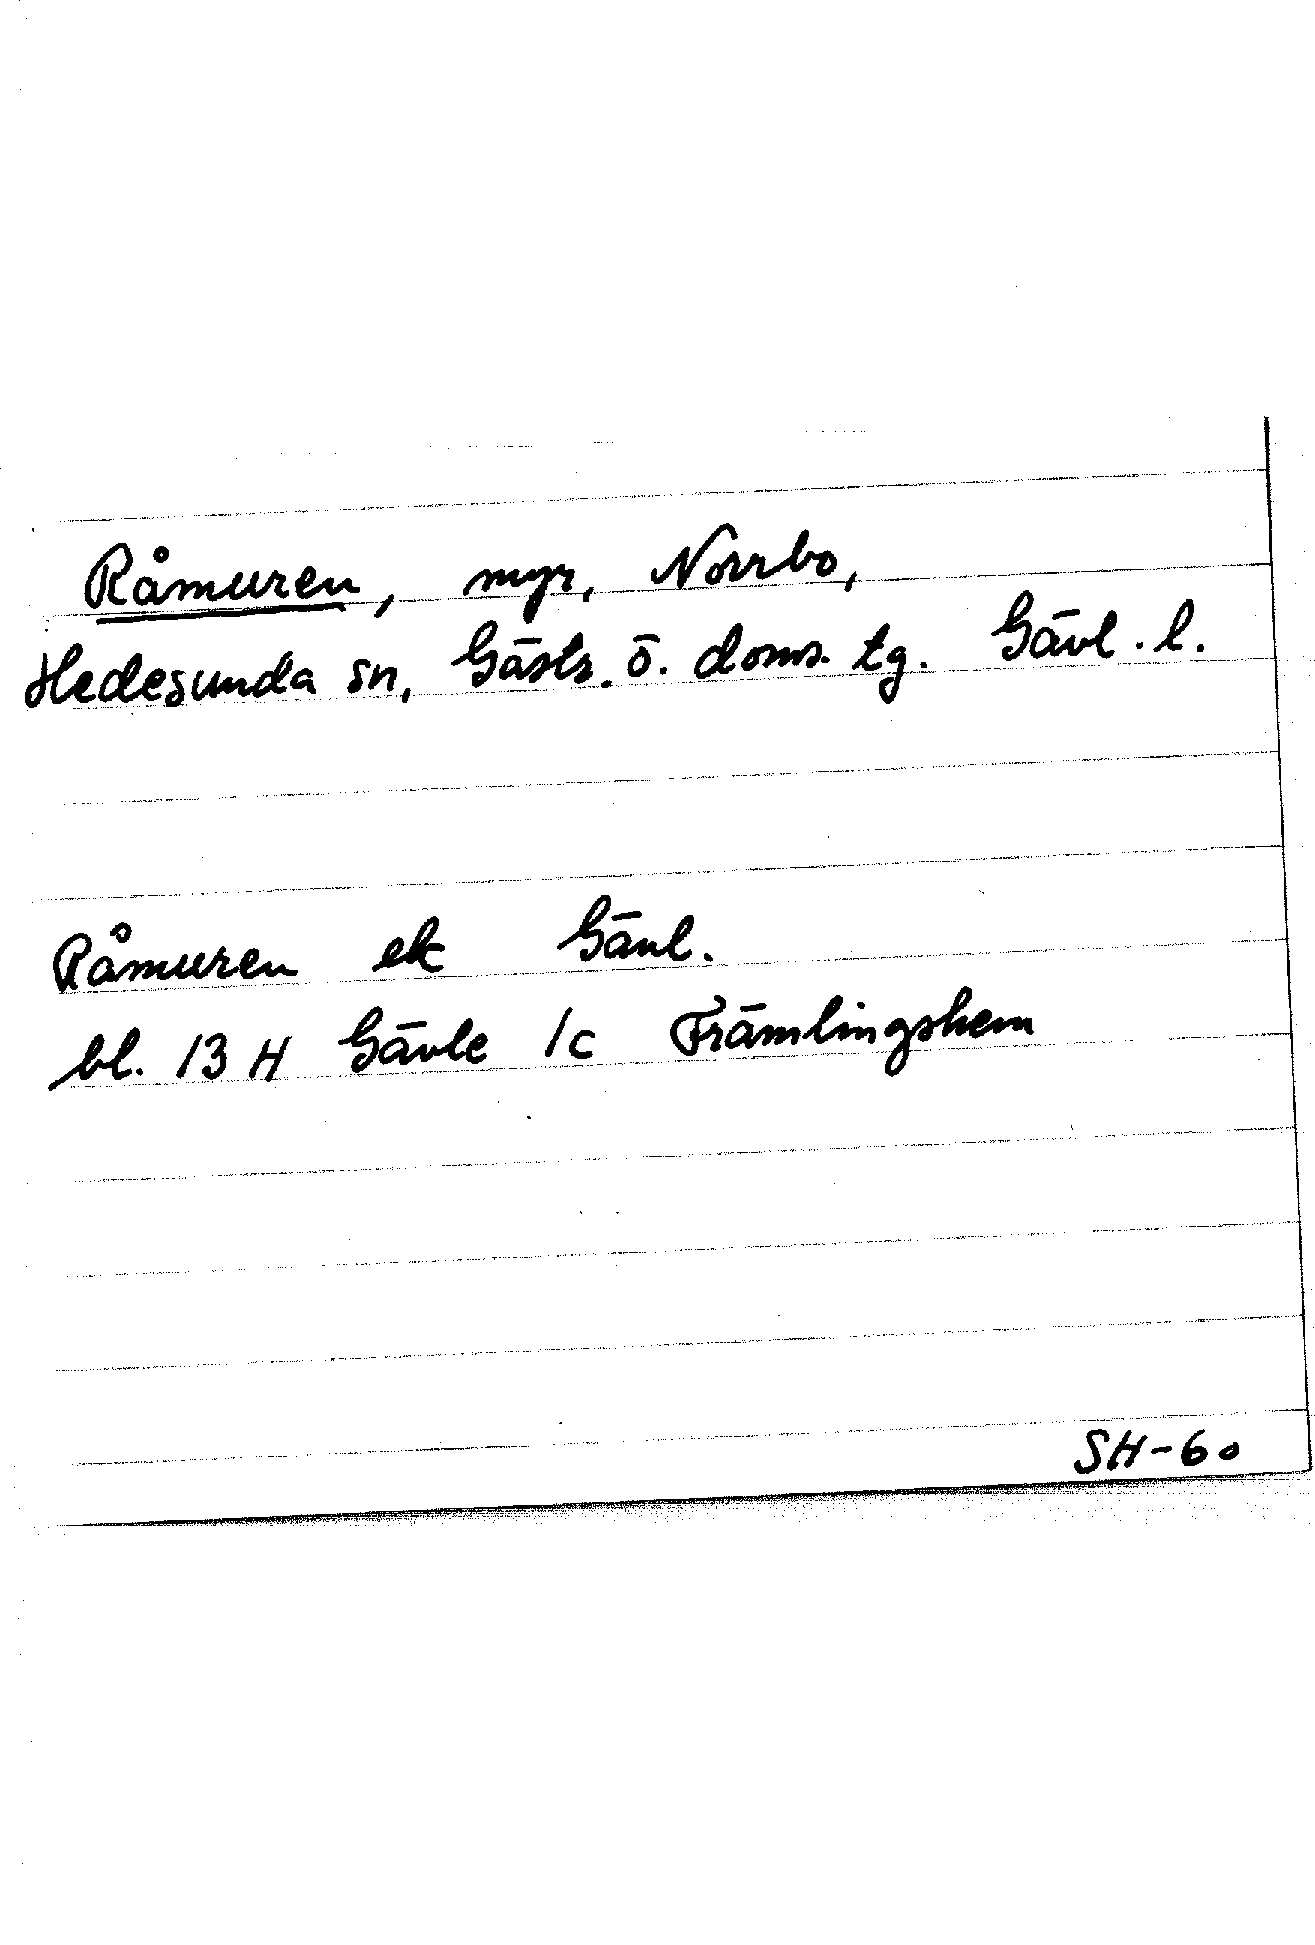 Råmuren, myr, Norrbo,
Hedesunda sn, Gästr. ö. doms. tg. Gävl. l.
Råmuren ek Gävl.
bl. 13 H Gävle 1c Främlingshem
SH-60